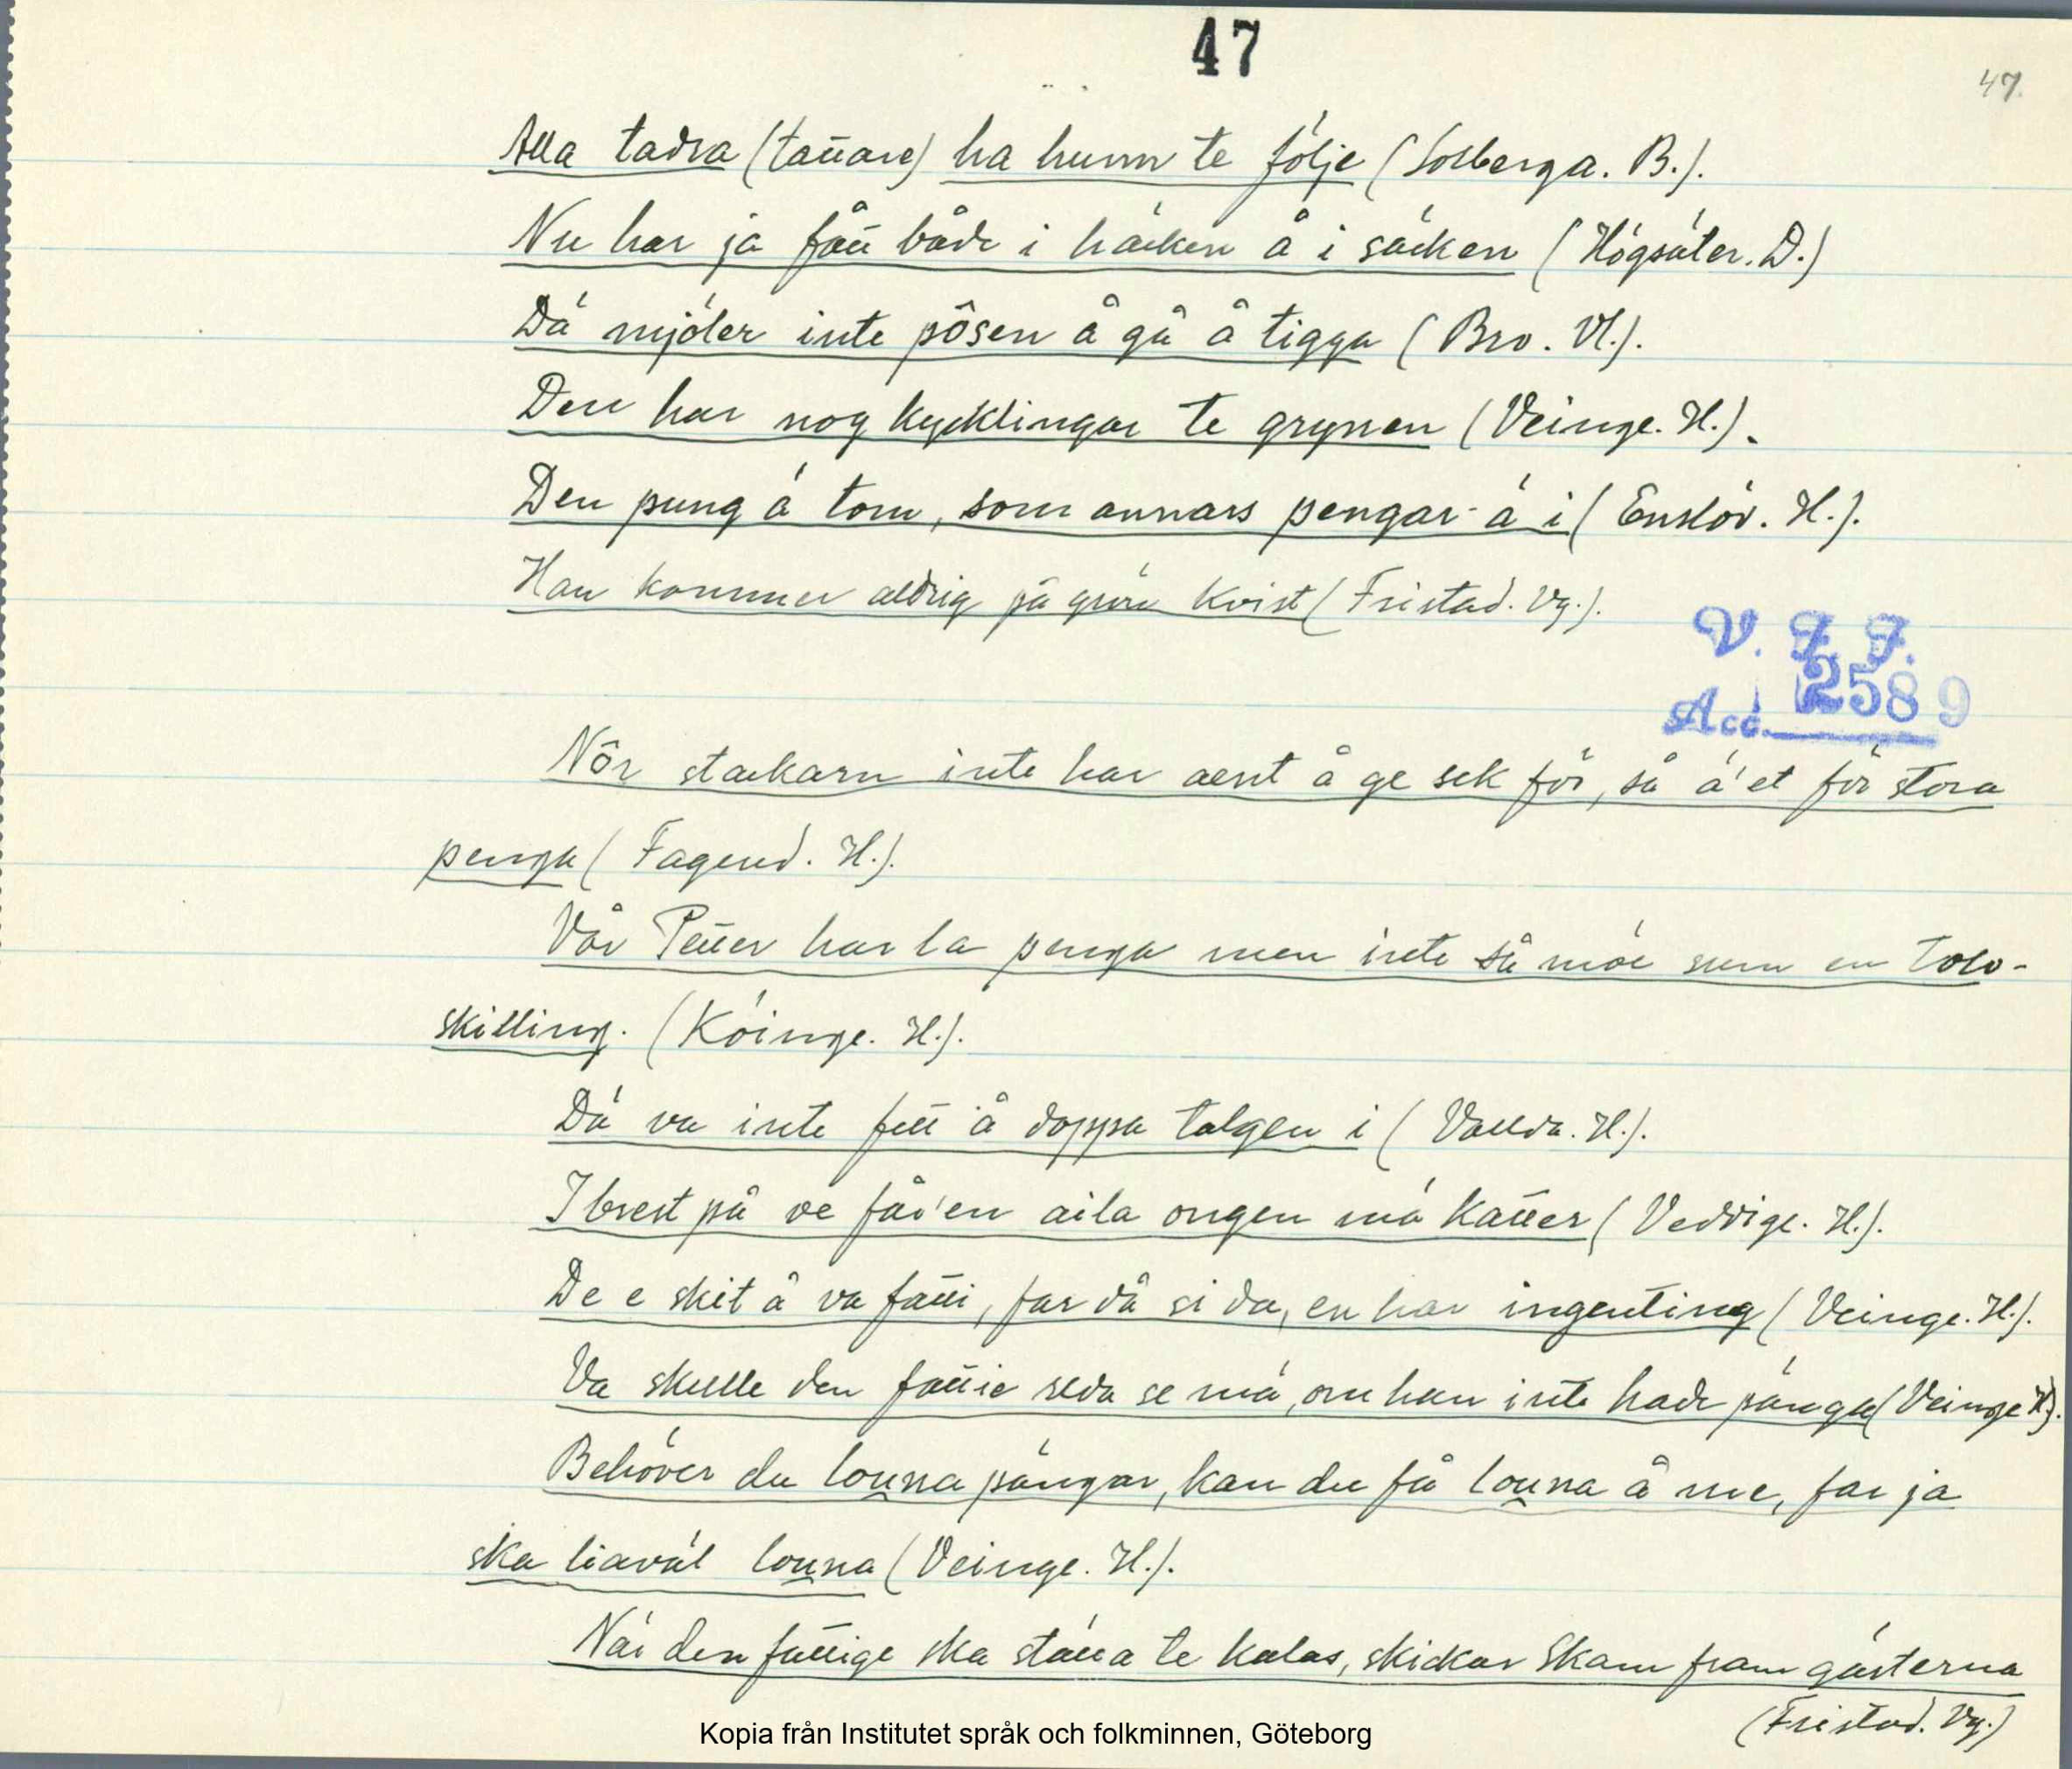 47
47.
Alla tadra (tattare) ha hunn te följe (Solberga. B.).
Nu har ja fått både i häcken å i säcken (Högsäter. D.)
Dä mjöler inte pôsen å gå å tigga (Bro. Vl.).
Den har nog kycklingar te grynen (Veinge. H.).
Den pung ä tom, som annars pengar ä i (Enslöv. H.).
Han kommer aldrig på grön kvist (Fristad. Vg.).
V. F. F.
Acc. 2589
Nôr stackarn inte har aent å ge sek för, så ä'et för stora
penga (Fagered. H.).
Vår Petter har la penga men inte så möe sum en tolv-
skilling. (Köinge. H.).
Dä va inte fett å doppa talgen i (Vallda. H.).
I brest på ve får'en aila ongen mä katter (Veddige. H.).
De e skit å va fatti, far då si da, en har ingenting (Veinge. H.).
Va skulle den fattie reda se mä, om han inte hade pänga (Veinge H.).
Behöver du louna pängar, kan du få louna å me, far ja
ska liaväl louna (Veinge. H.).
När den fattige ska ställa te kalas, skickar Skam fram gästerna
(Fristad. Vg.)
Kopia från Institutet språk och folkminnen, Göteborg